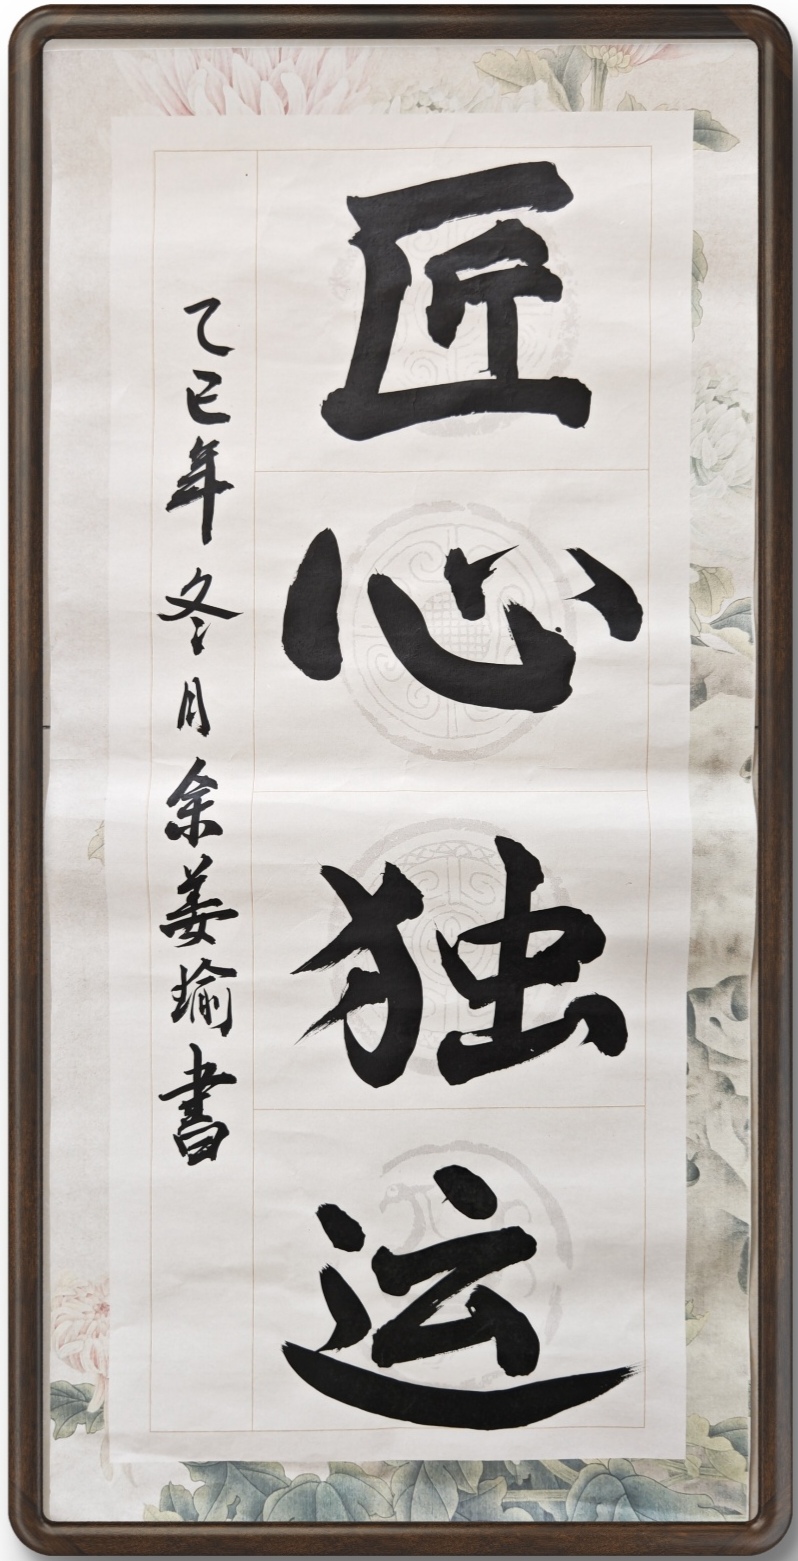 匠心独运
乙巳年冬月余姜瑜書